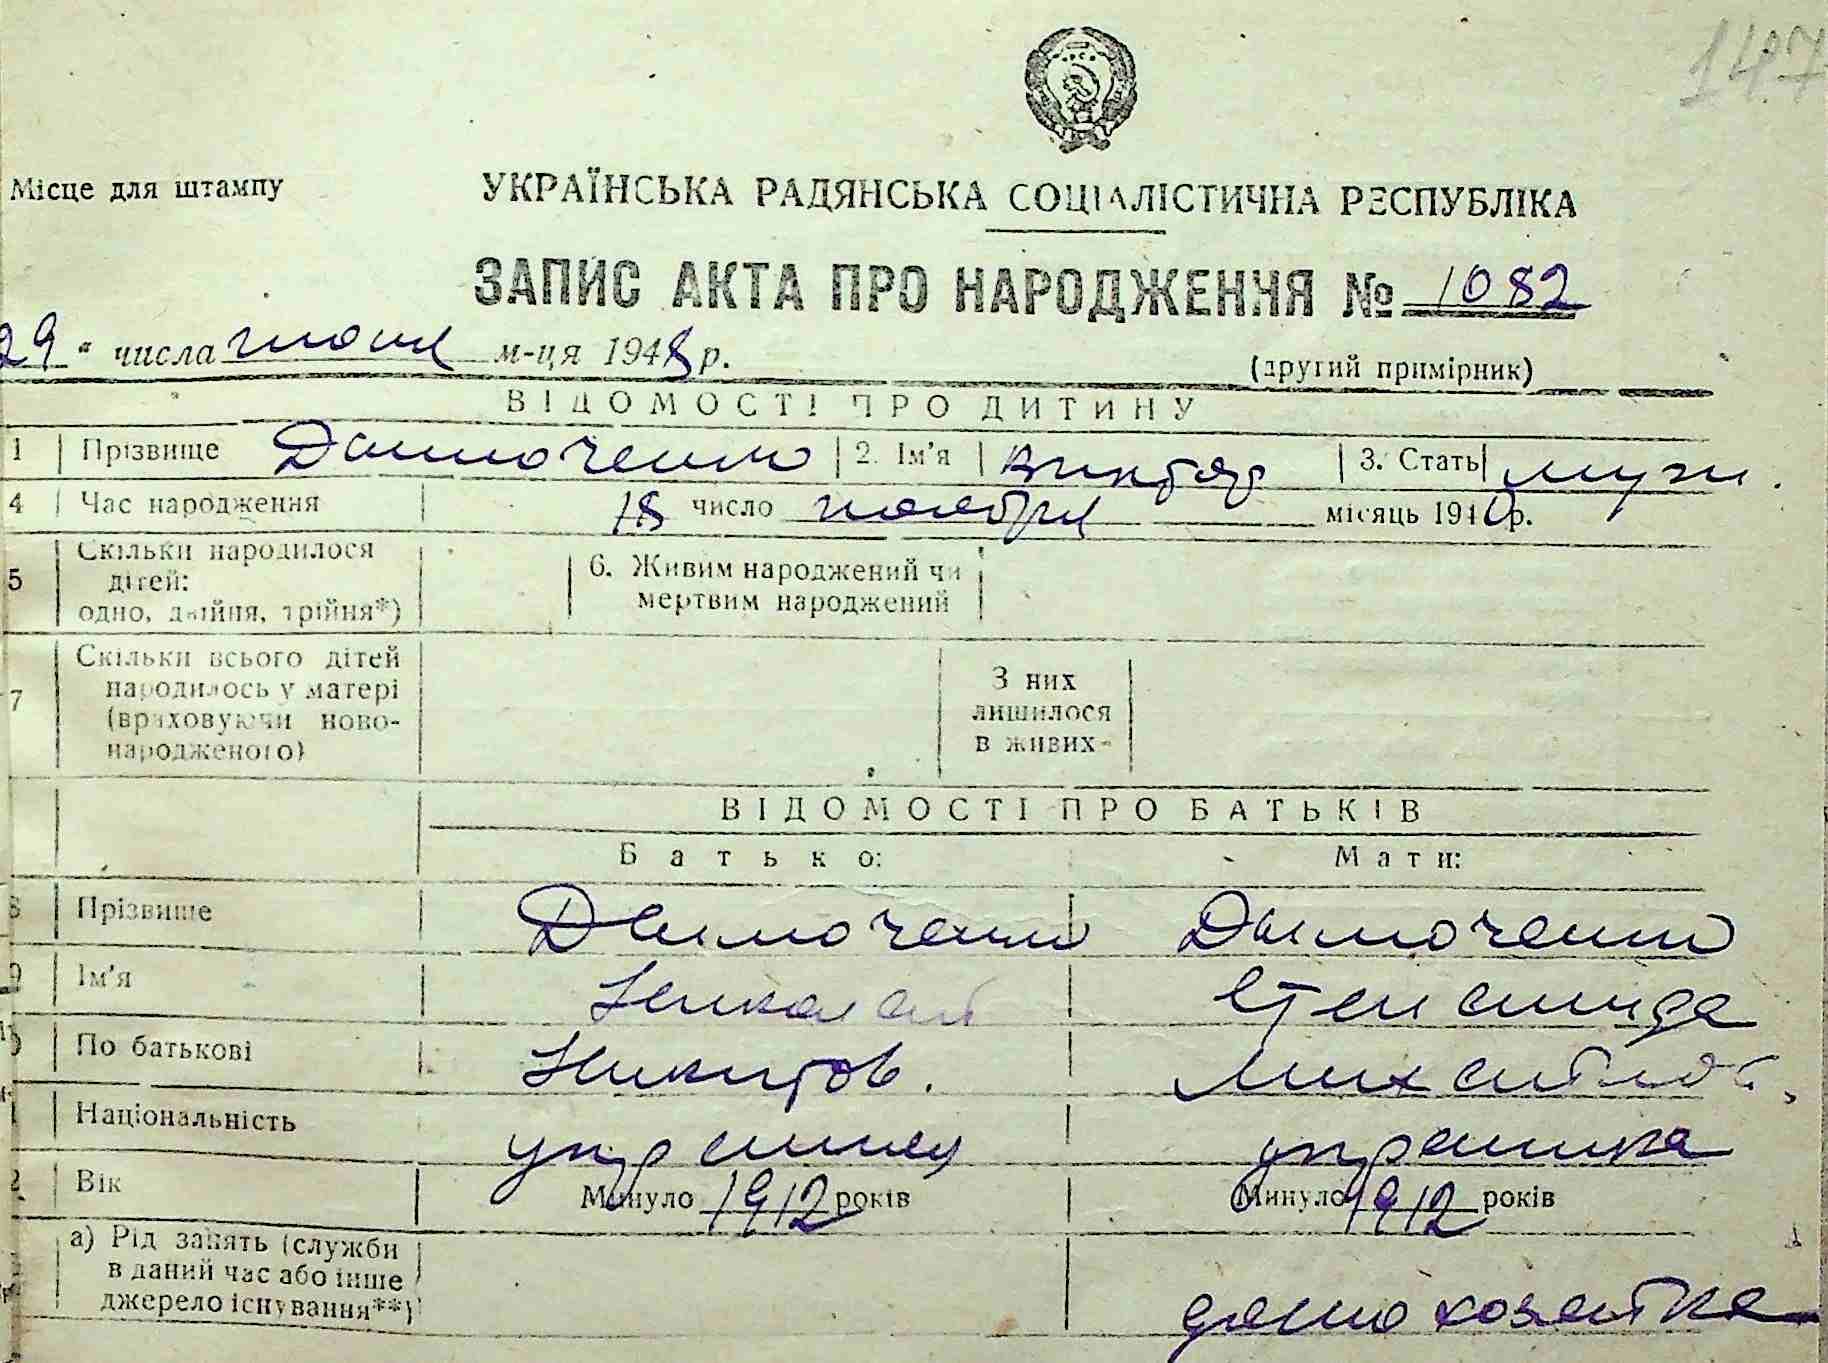 147
Місце для штампу
УКРАЇНСЬКА РАДЯНСЬКА СОЦІАЛІСТИЧНА РЕСПУБЛІКА
ЗАПИС АКТА ПРО НАРОДЖЕННЯ № 1082
29 " числа июня м-ця 1948 р. (другий примірник)
ВІДОМОСТІ ПРО ДИТИНУ
1 Прізвище Дымоченко 2. Ім'я Виктор 3. Стать муж.
4 Час народження 18 число ноября місяць 1940 р.
5 Скільки народилося дітей: одно, двійня, трійня*) 6. Живим народжений чи мертвим народжений
7 Скільки всього дітей народилось у матері (враховуючи ново-народженого) З них лишилося в живих
ВІДОМОСТІ ПРО БАТЬКІВ
Батько: Мати:
8 Прізвище Дымоченко Дымоченко
9 Ім'я Николай Степанида
По батькові Никитов. Михайлов.
Національність украинец украинка
2 Вік Минуло 1912 років Минуло 1912 років
а) Рід занять (служби в даний час або інше джерело існування**) домохозяйка